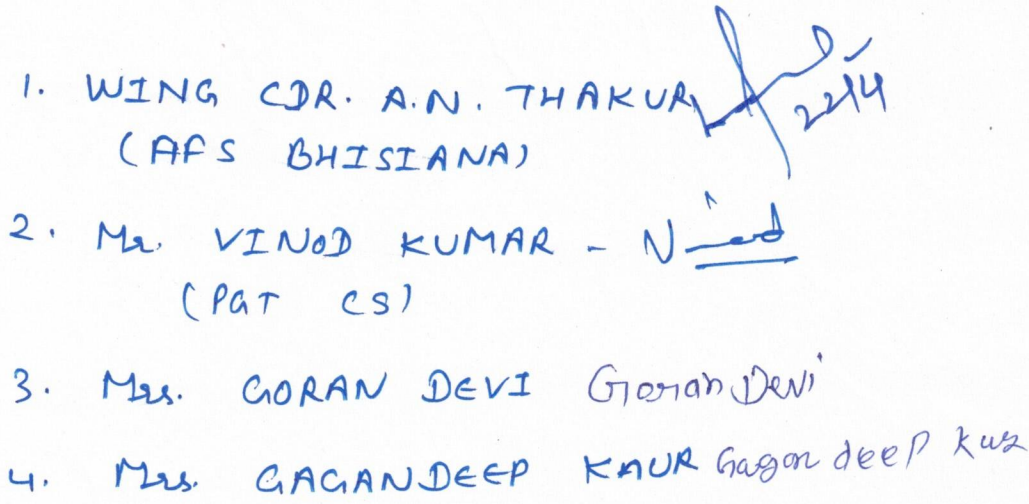 1. WING CDR. A.N. THAKUR 22/4
(AFS BHISIANA)
2. Mr. VINOD KUMAR -
(PGT CS)
3. Mrs. GORAN DEVI Goran Devi
4. Mrs. GAGANDEEP KAUR Gagan deep Kur